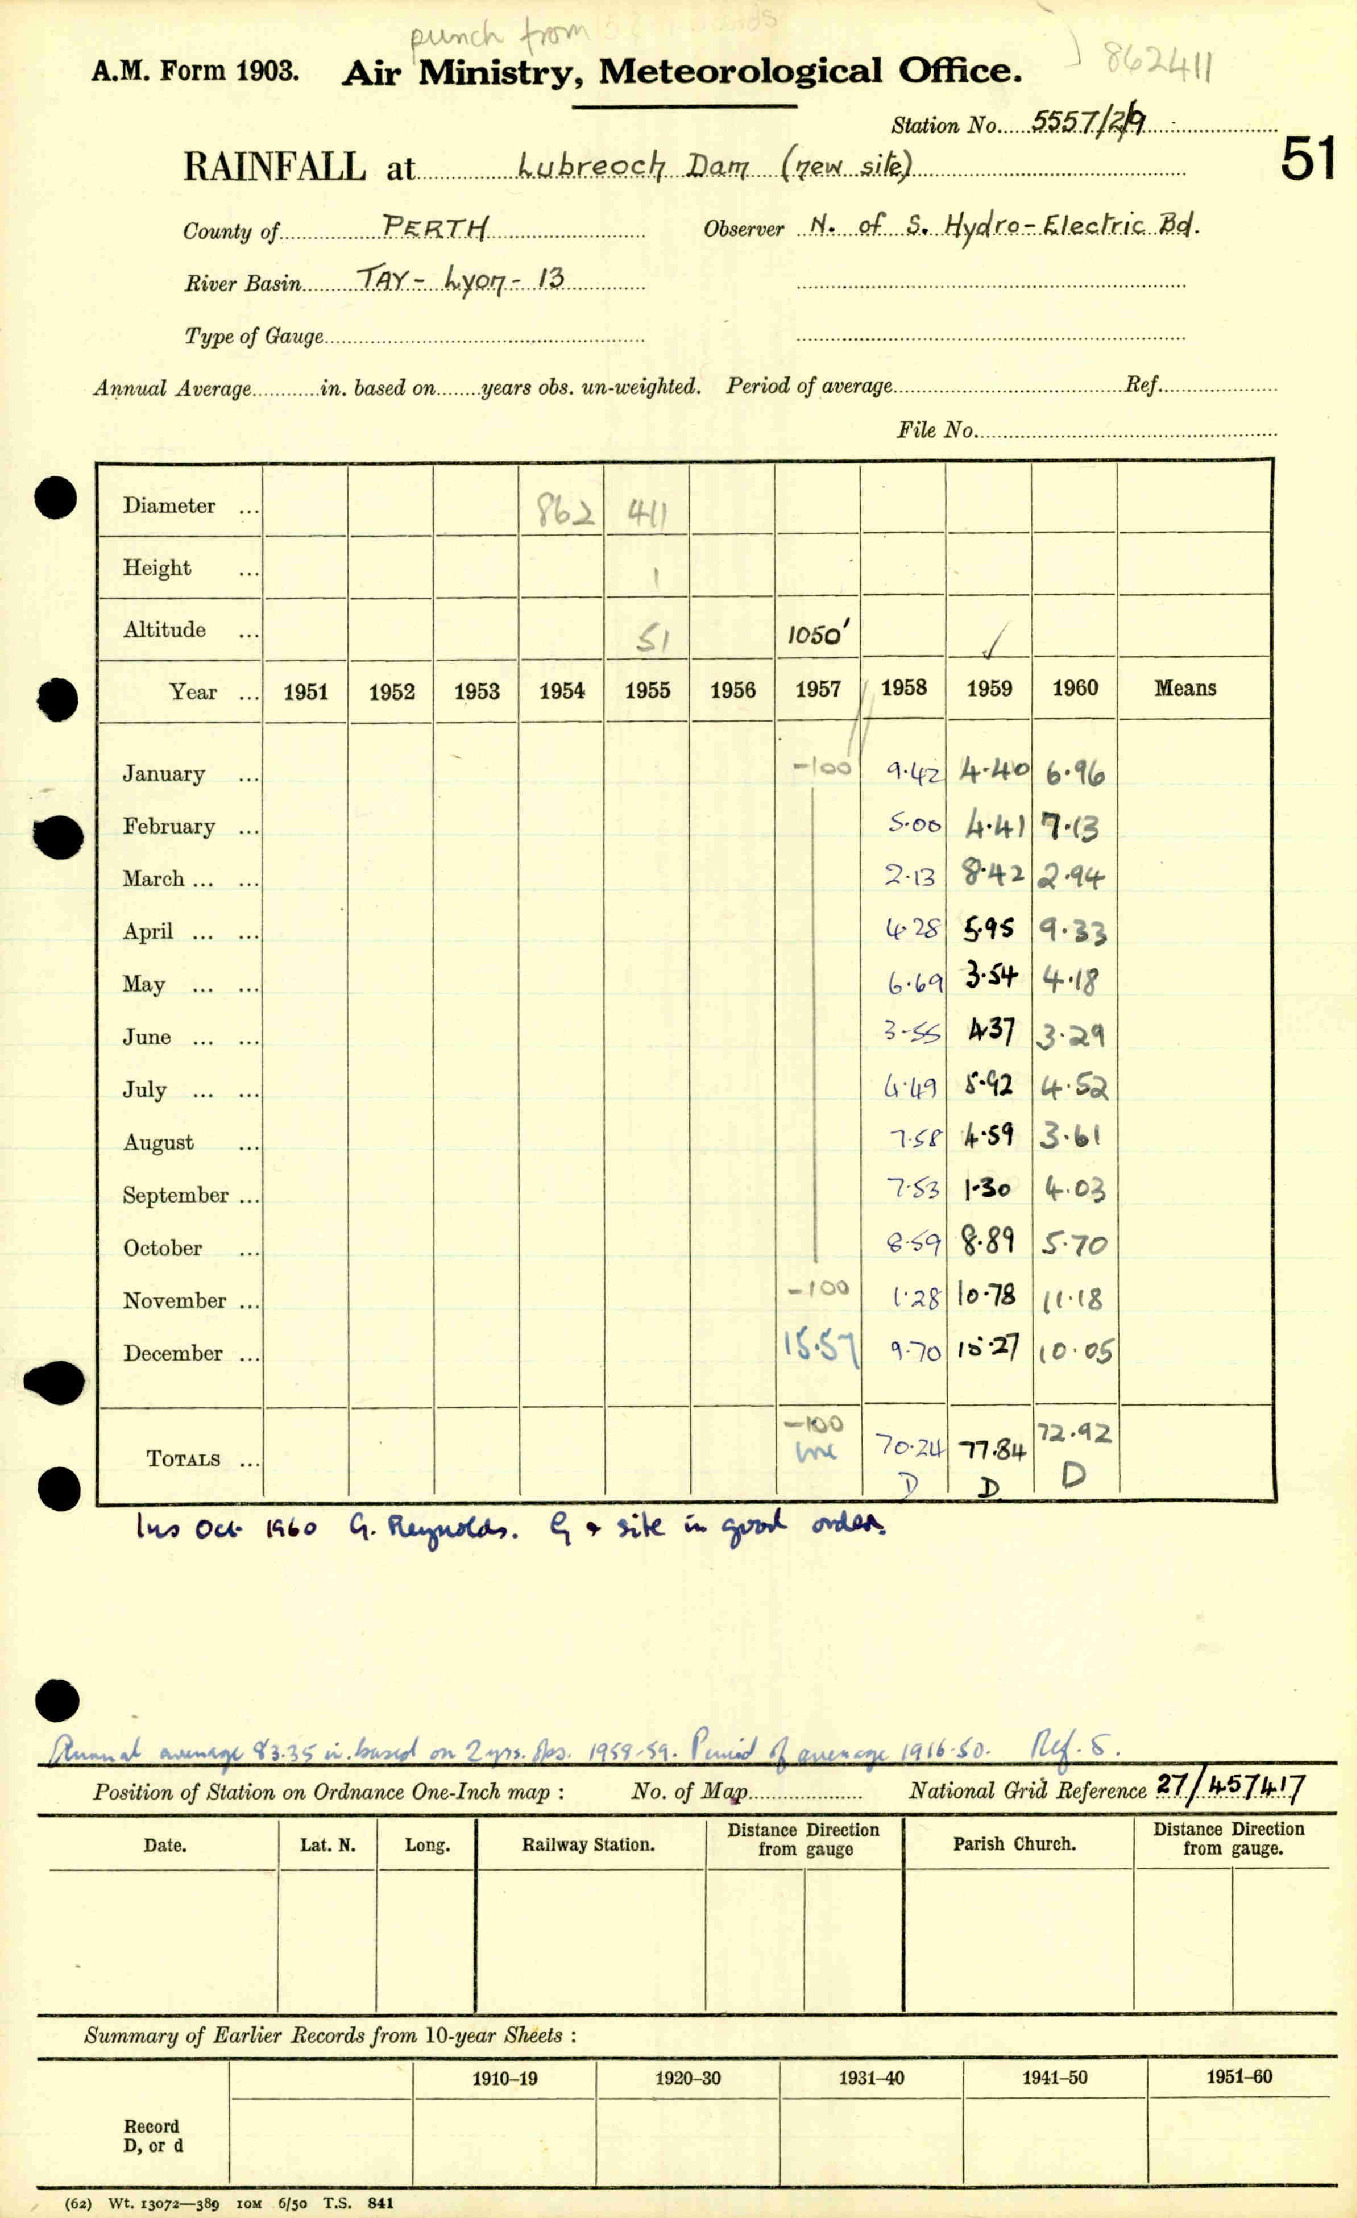 punch from
862411
A.M. Form 1903. Air Ministry, Meteorological Office.
Station No. 5557/2/9
51
RAINFALL at Lubreoch Dam (new site)
County of PERTH Observer N. of S. Hydro-Electric Bd.
River Basin TAY - Lyon - 13
Type of Gauge
Annual Average in. based on years obs. un-weighted. Period of average Ref.
File No.
Diameter ... 862 411
Height ... 1
Altitude ... 51 1050' ✓
Year ... 1951 1952 1953 1954 1955 1956 1957 1958 1959 1960 Means
January ... -100 9.42 4.40 6.96
February ... 5.00 4.41 7.13
March ... ... 2.13 8.42 2.94
April ... ... 4.28 5.95 9.33
May ... ... 6.69 3.54 4.18
June ... ... 3.55 4.37 3.29
July ... ... 4.49 5.92 4.52
August ... 7.58 4.59 3.61
September ... 7.53 1.30 4.03
October ... 8.59 8.89 5.70
November ... -100 1.28 10.78 11.18
December ... 15.57 9.70 15.27 10.05
-100
TOTALS ... inc 70.24 77.84 72.92
D D D
Ins Oct 1960 G. Reynolds. G & site in good order.
Annual average 83.35 in. based on 2 yrs. obs. 1958-59. Period of average 1916-50. Ref. S.
Position of Station on Ordnance One-Inch map : No. of Map National Grid Reference 27/457417
Date. Lat. N. Long. Railway Station. Distance Direction from gauge Parish Church. Distance Direction from gauge.
Summary of Earlier Records from 10-year Sheets :
1910–19 1920–30 1931–40 1941–50 1951–60
Record
D, or d
(62) Wt. 13072—389 10M 6/50 T.S. 841